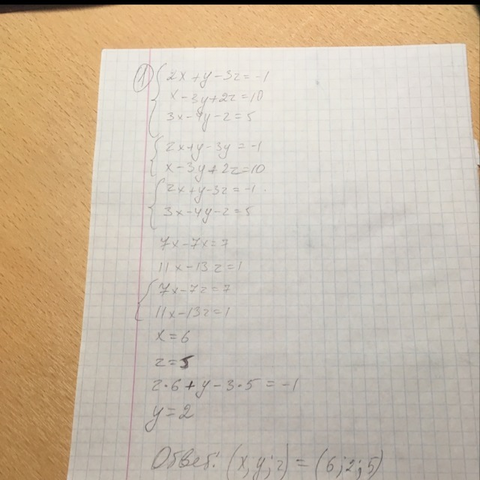 1) 2x+y-3z=-1
x-3y+2z=10
3x-4y-z=5
2x+y-3y=-1
x-3y+2z=10
2x+y-3z=-1
3x-4y-z=5
7x-7x=7
11x-13z=1
7x-7z=7
11x-13z=1
x=6
z=5
2·6+y-3·5=-1
y=2
Ответ: (x;y;z)=(6;2;5)